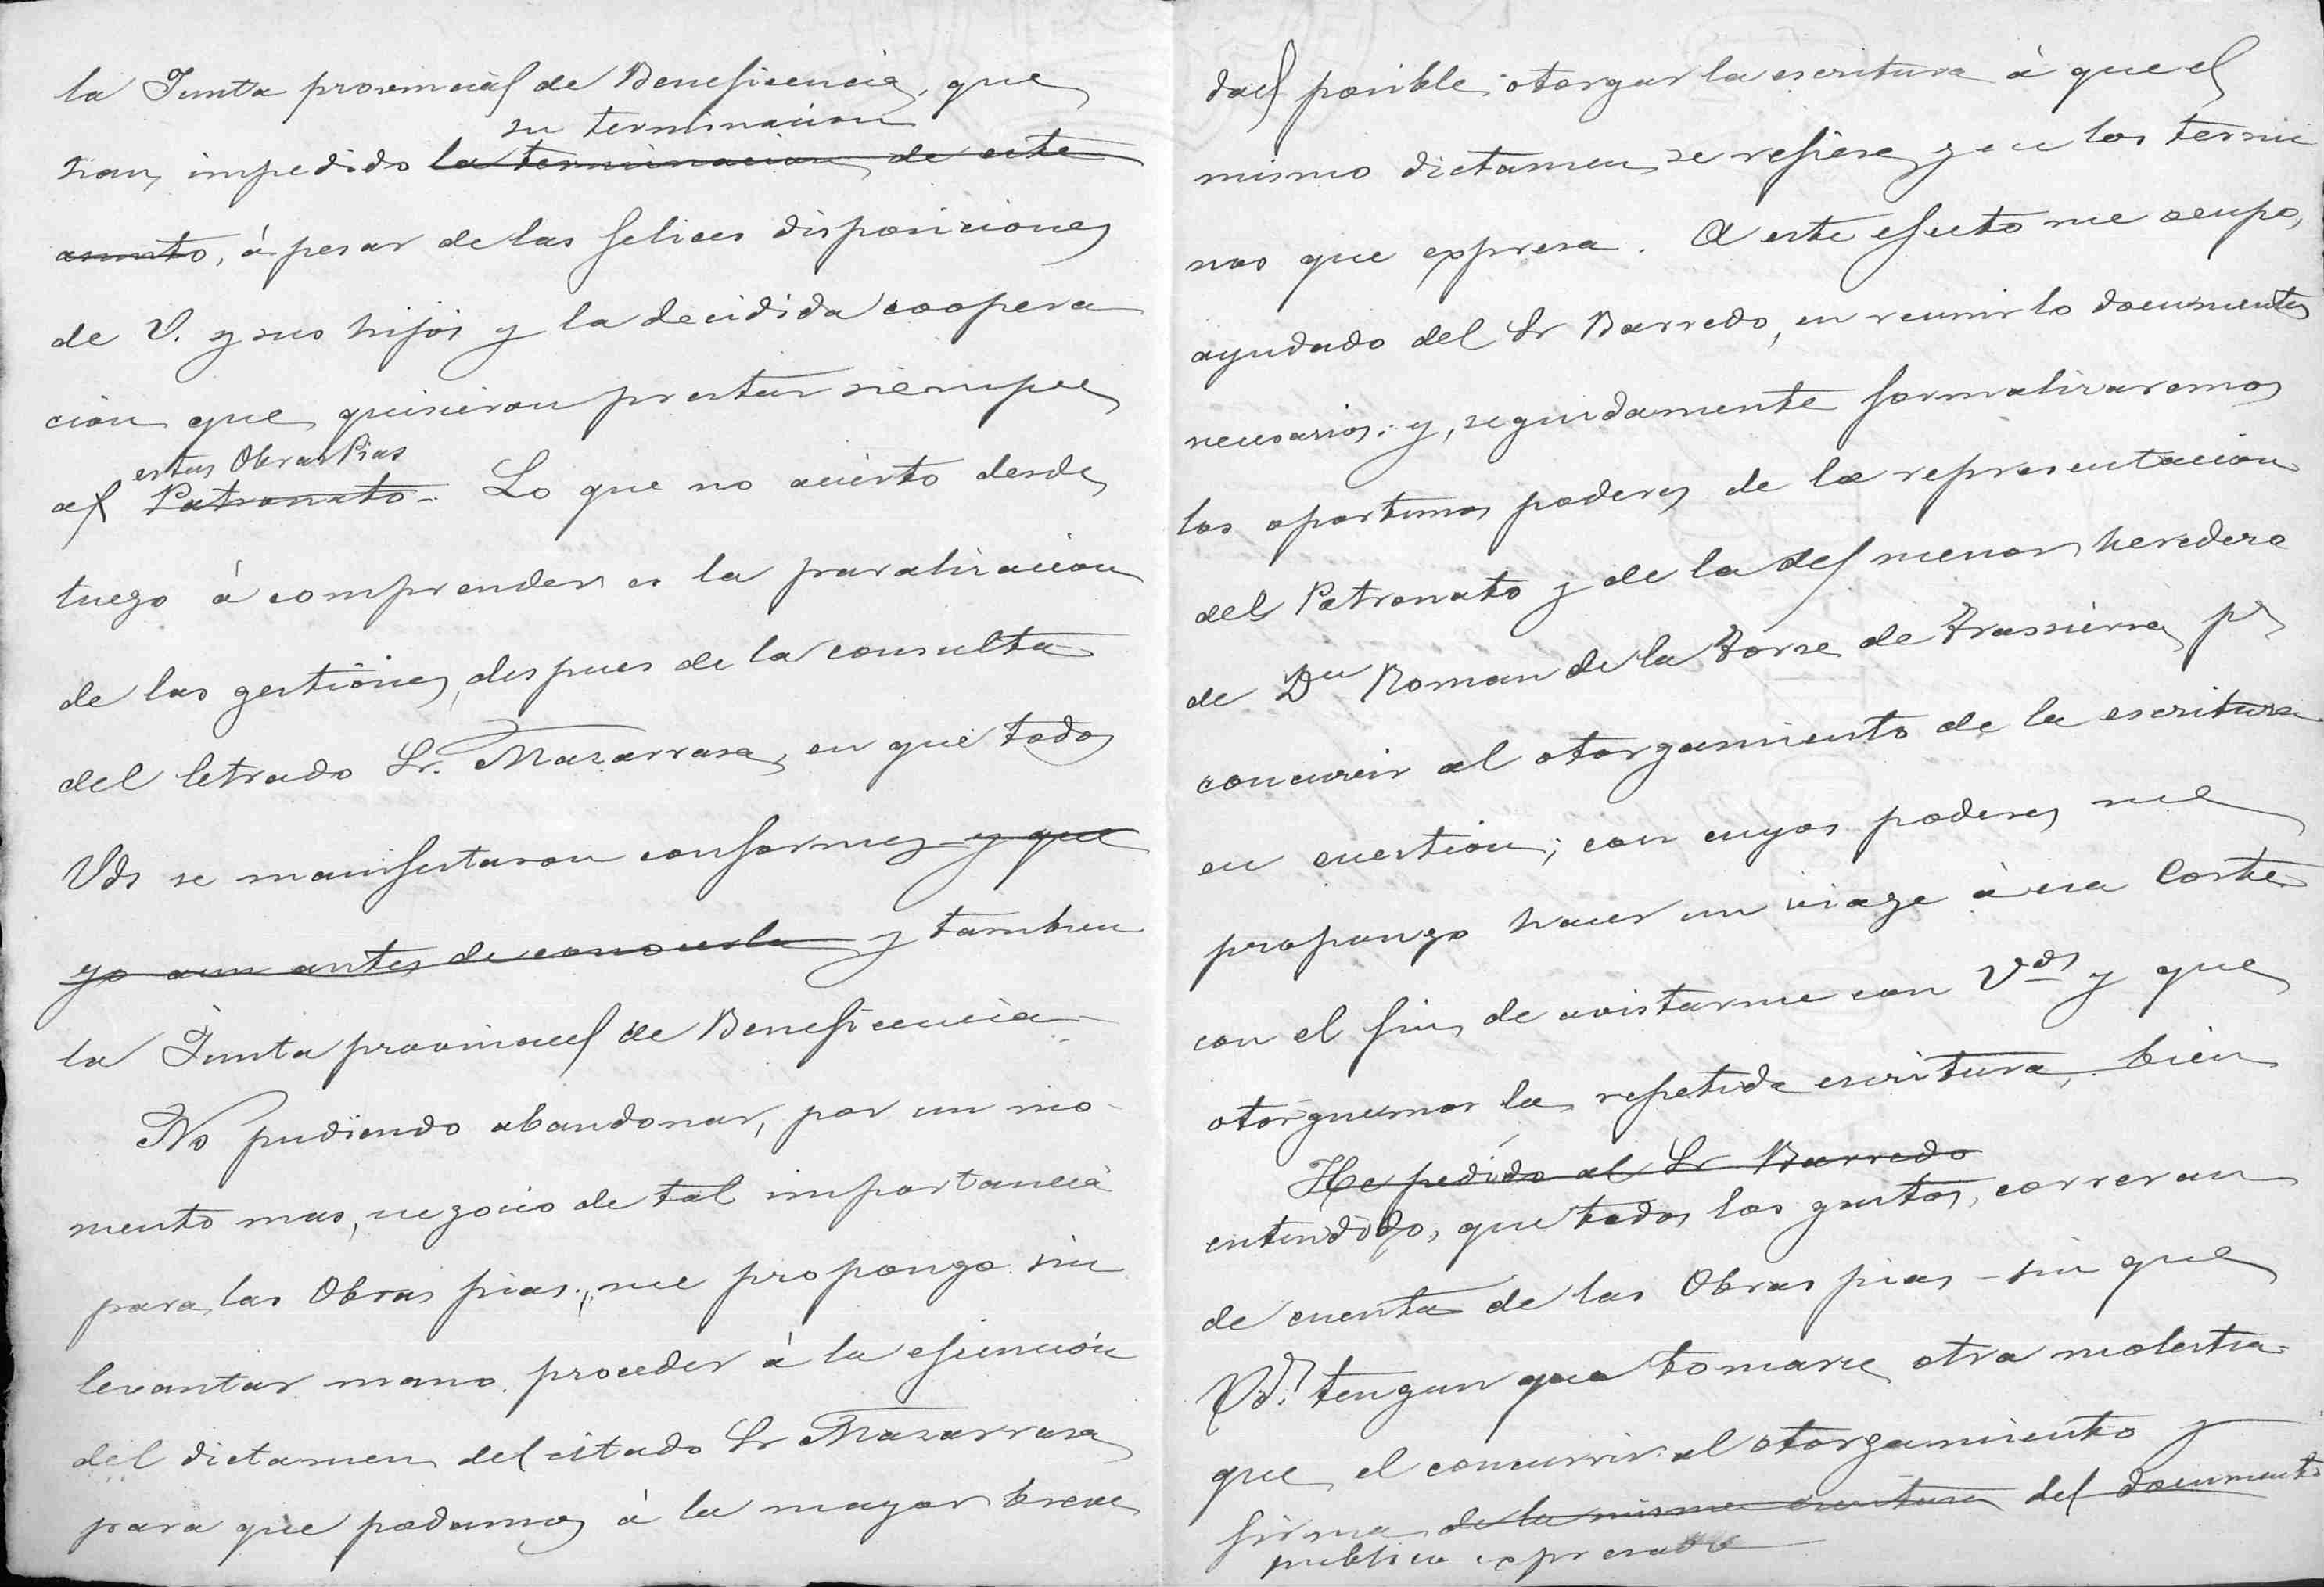 la Junta provincial de Beneficencia, que
su terminacion
han impedido la terminacion de este
asunto, á pesar de las felices disposiciones
de V. y sus hijos y la decidida coopera
cion que quisieron prestar siempre
estas Obras Pias
al Patronato. Lo que no acierto desde
luego á comprender es la paralizacion
de las gestiones, despues de la consulta
del letrado Sr. Mazarrasa, en que todos
Vds se manifestaron conformes y que
yo aun antes de conocerla y tambien
la Junta provincial de Beneficencia.
No pudiendo abandonar, por un mo-
mento mas, negocio de tal importancia
para las Obras pias, me propongo sin
levantar mano proceder á la ejecucion
del dictamen del citado Sr Mazarrasa
para que podamos á la mayor breve
dad posible otorgar la escritura á que el
mismo dictamen se refiere y en los termi
nos que expresa. A este efecto me ocupo,
ayudado del Sr Barredo, en reunir lo documentos
necesarios; y, seguidamente formalizaremos
los oportunos poderes de la representacion
del Patronato y de la del menor heredero
de Dn Roman de la Torre de Trassierra pa
concurrir al otorgamiento de la escritura
en cuestion; con cuyos poderes me
propongo hacer un viage á esa Corte
con el fin de avistarme con Vds y que
otorguemos la repetida escritura, bien
He pedido al Sr Barredo
entendido, que todos los gastos, correran
de cuenta de las Obras pias - sin que
Vds. tengan que tomarse otra molestia
que el concurrir al otorgamiento y
firma de la misma escritura del documento
publico expresado